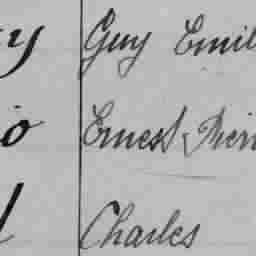 y Guy Emil
o Ernest Pierr
Charles